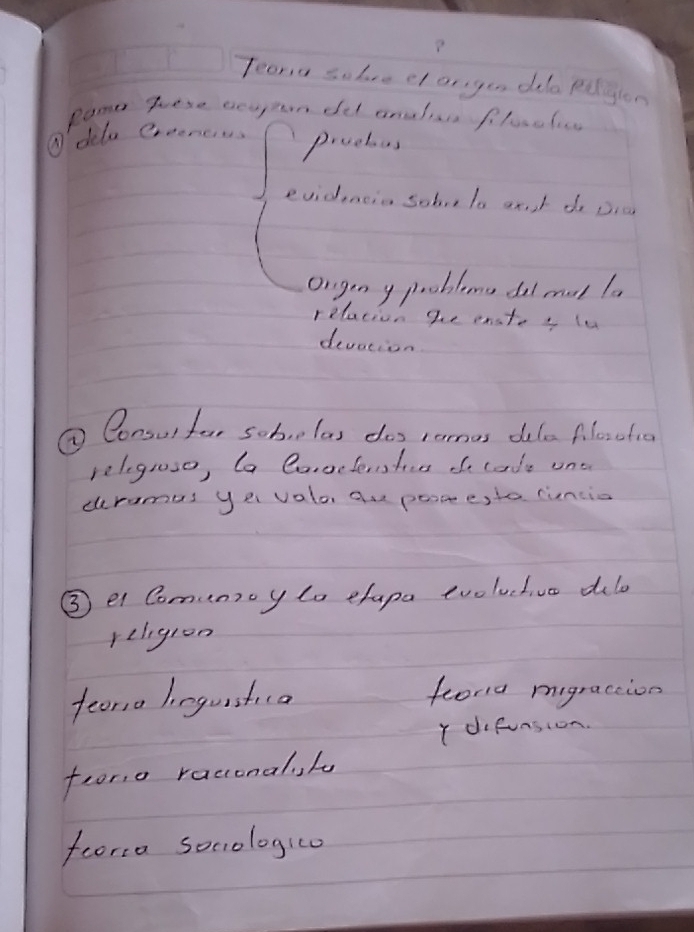 Teoria sobre el origen dela Religion
Rama quese ocupan del analisis filosofico
① dela Creencias pruebas
evidencia sobre la exist de Dios
Origen y problema del mal la
relacion que enste y la
devocion.
② Consultar sobre las dos ramas dela filosofia
religiosa, la Caracteristica de cada una
deramas y el valor que posee esta ciencia
③ el Comienzo y la etapa evolutiva dela
religion
teoria linguistica
teoria migraccion
y difunsion.
teoria racionalista
teoria sociologico